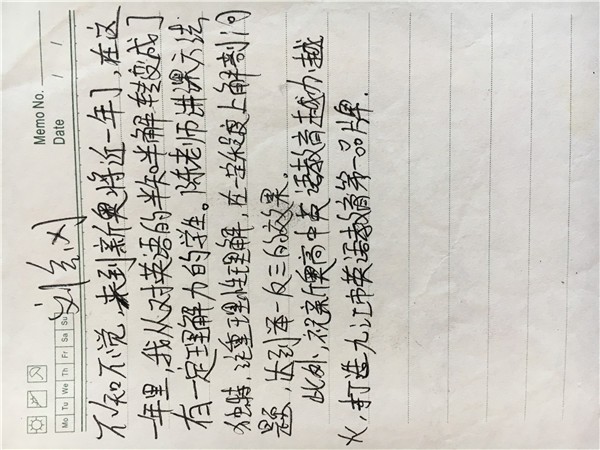 Memo No.
Date / /
Mo Tu We Th Fr Sa Su
刘
不知不觉,来到新奥将近一年了,在这
一年里,我从对英语的半知半解转变成了
有一定理解力的学生。陈老师讲课方法
独特,注重理性理解,在一定程度上解剖问
题,达到举一反三的效果。
此外,祝新奥高中英语教育越办越
火,打造九江市英语教育第一品牌.